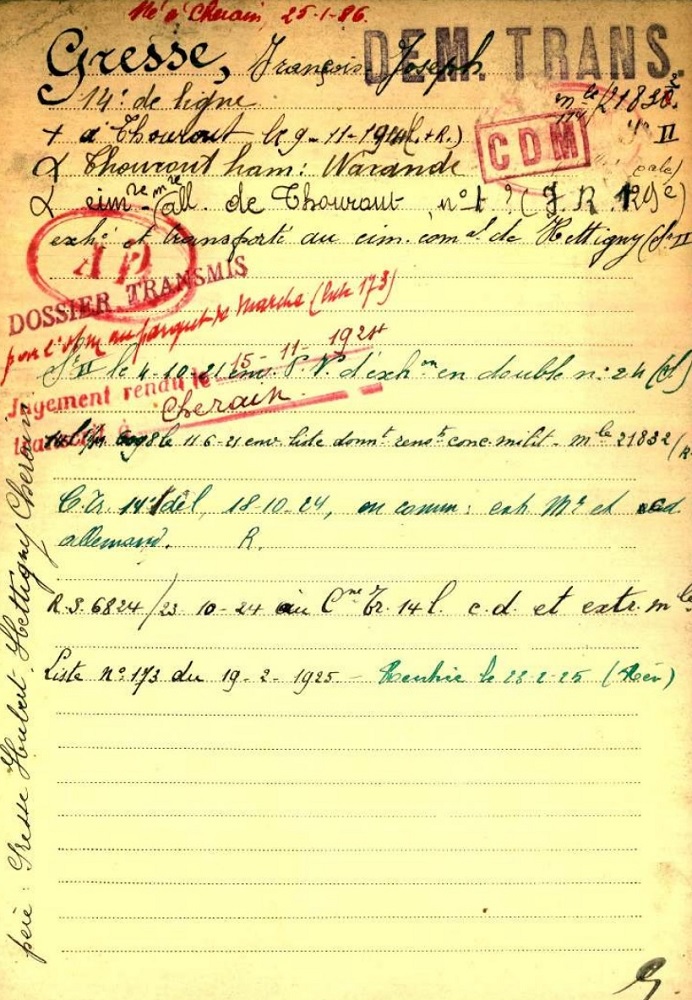 Né à Cherain, 25-1-86.
DEM. TRANS.
Gresse, François Joseph
14e de ligne mle 21832
+ à Thourout le 9-11-1914 (L.+R.)
CDM II
α Thourout ham: Warande
α cimre mre all. de Thourout n° 1 ? (J.R. 129e)
exhé et transporté au cim. comal de Hettigny (Sr II
AR
DOSSIER TRANSMIS
au parquet de Marche (Liste 173)
15-11-1924
Sr II le 4-10-21 env. P.V. d'exhon en double n: 24 (d)
Jugement rendu le
Cherain
transcrit à
le 11-6-21 env. liste donnt rensts conc. milit. mle 21832 (R.
C.Tr. 14e/dél, 18-10-24, en comm: ext. Mr et acd
allemand. R.
R.S. 6824/23-10-24 au Cne Tr. 14 l. c.d. et extr. m le
Liste n° 173 du 19-2-1925 - Rentrée le 23-2-25 (Rév)
père: Gresse Hubert. Hettigny Cherain